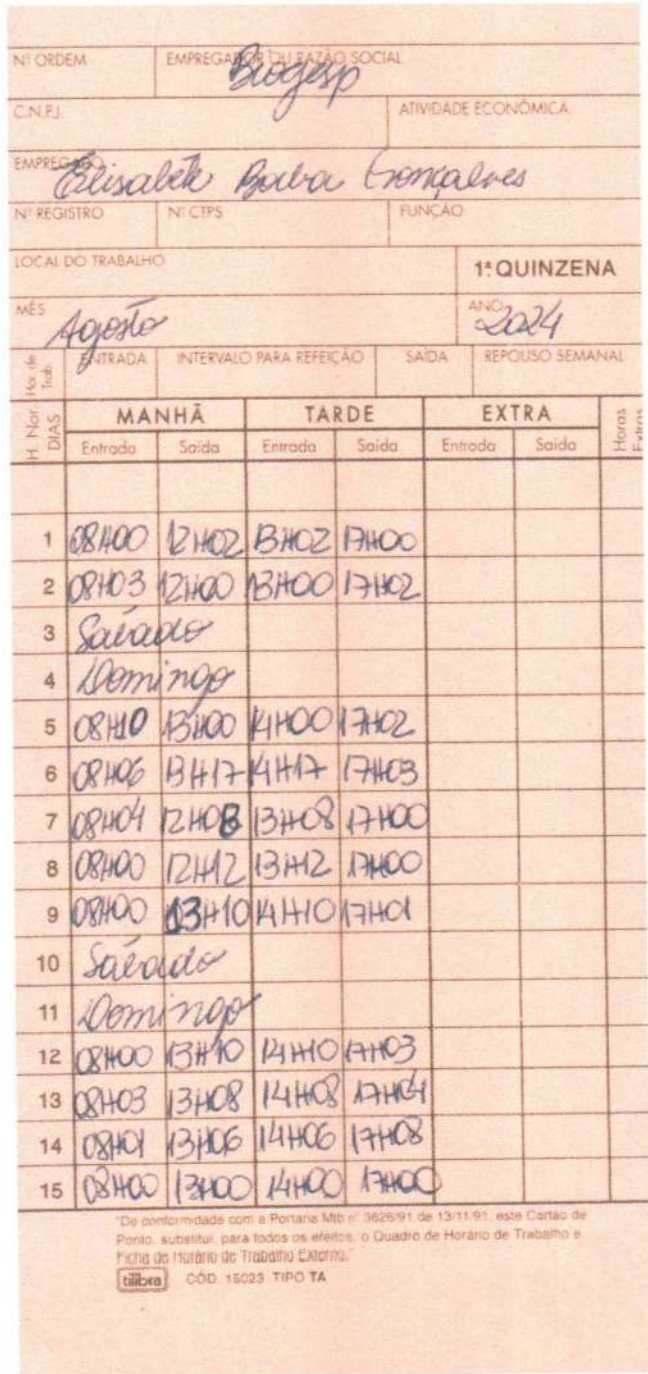 Nº ORDEM EMPREGADOR OU RAZÃO SOCIAL
Biogesp
C.N.P.J. ATIVIDADE ECONÔMICA
EMPREGADO
Elisabete Borba Gonçalves
Nº REGISTRO Nº CTPS FUNÇÃO
LOCAL DO TRABALHO 1ª QUINZENA
MÊS Agosto ANO 2024
Hor. de Trab. ENTRADA INTERVALO PARA REFEIÇÃO SAÍDA REPOUSO SEMANAL
H. Nor. DIAS MANHÃ TARDE EXTRA Horas Extras
Entrada Saída Entrada Saída Entrada Saída
1 08H00 12H02 13H02 17H00
2 08H03 12H00 13H00 17H02
3 Sábado
4 Domingo
5 08H10 13H00 14H00 17H02
6 08H06 13H17 14H17 17H03
7 08H04 12H08 13H08 17H00
8 08H00 12H12 13H12 17H00
9 08H00 13H10 14H10 17H01
10 Sábado
11 Domingo
12 08H00 13H10 14H10 17H03
13 08H03 13H08 14H08 17H04
14 08H01 13H06 14H06 17H08
15 08H00 13H00 14H00 17H00
"De conformidade com a Portaria Mtb nº 3626/91 de 13/11/91, este Cartão de
Ponto, substitui, para todos os efeitos, o Quadro de Horário de Trabalho e
Ficha de Horário de Trabalho Externo."
tilibra CÓD. 15023 TIPO TA